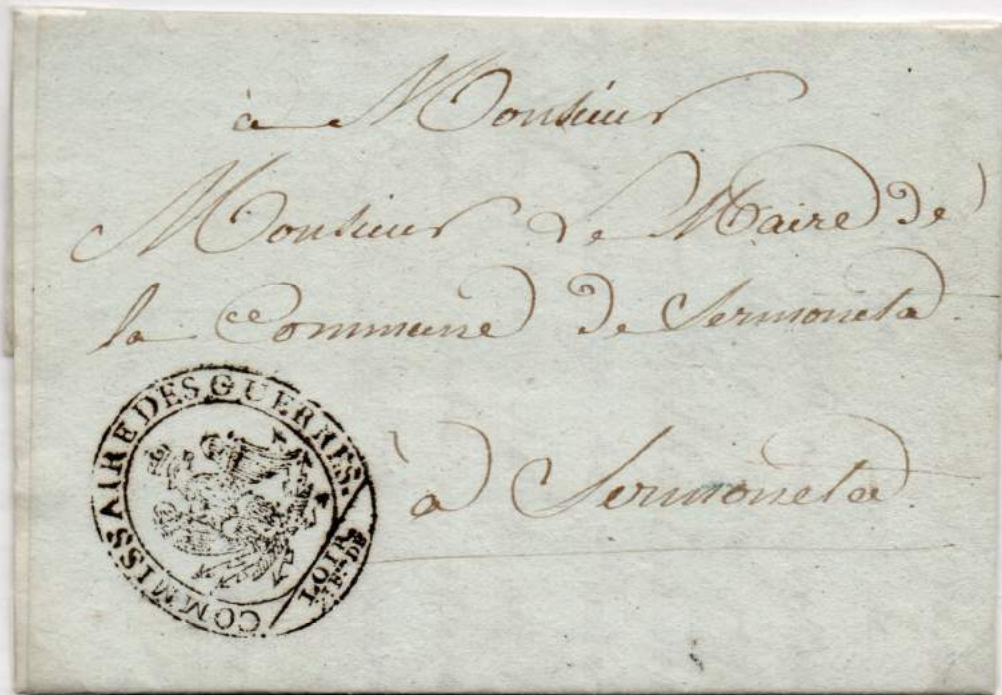 à Monsieur
Monsieur Le Maire de
la Commune de Sermoneta
à Sermoneta
COMMISSAIRE DES GUERRES.